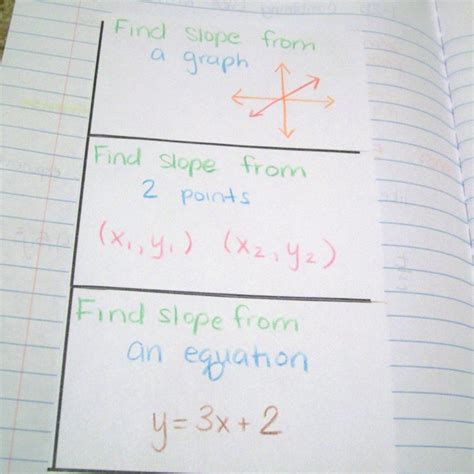 Find slope from
a graph
Find slope from
2 points
(x₁, y₁) (x₂, y₂)
Find slope from
an equation
y = 3x + 2